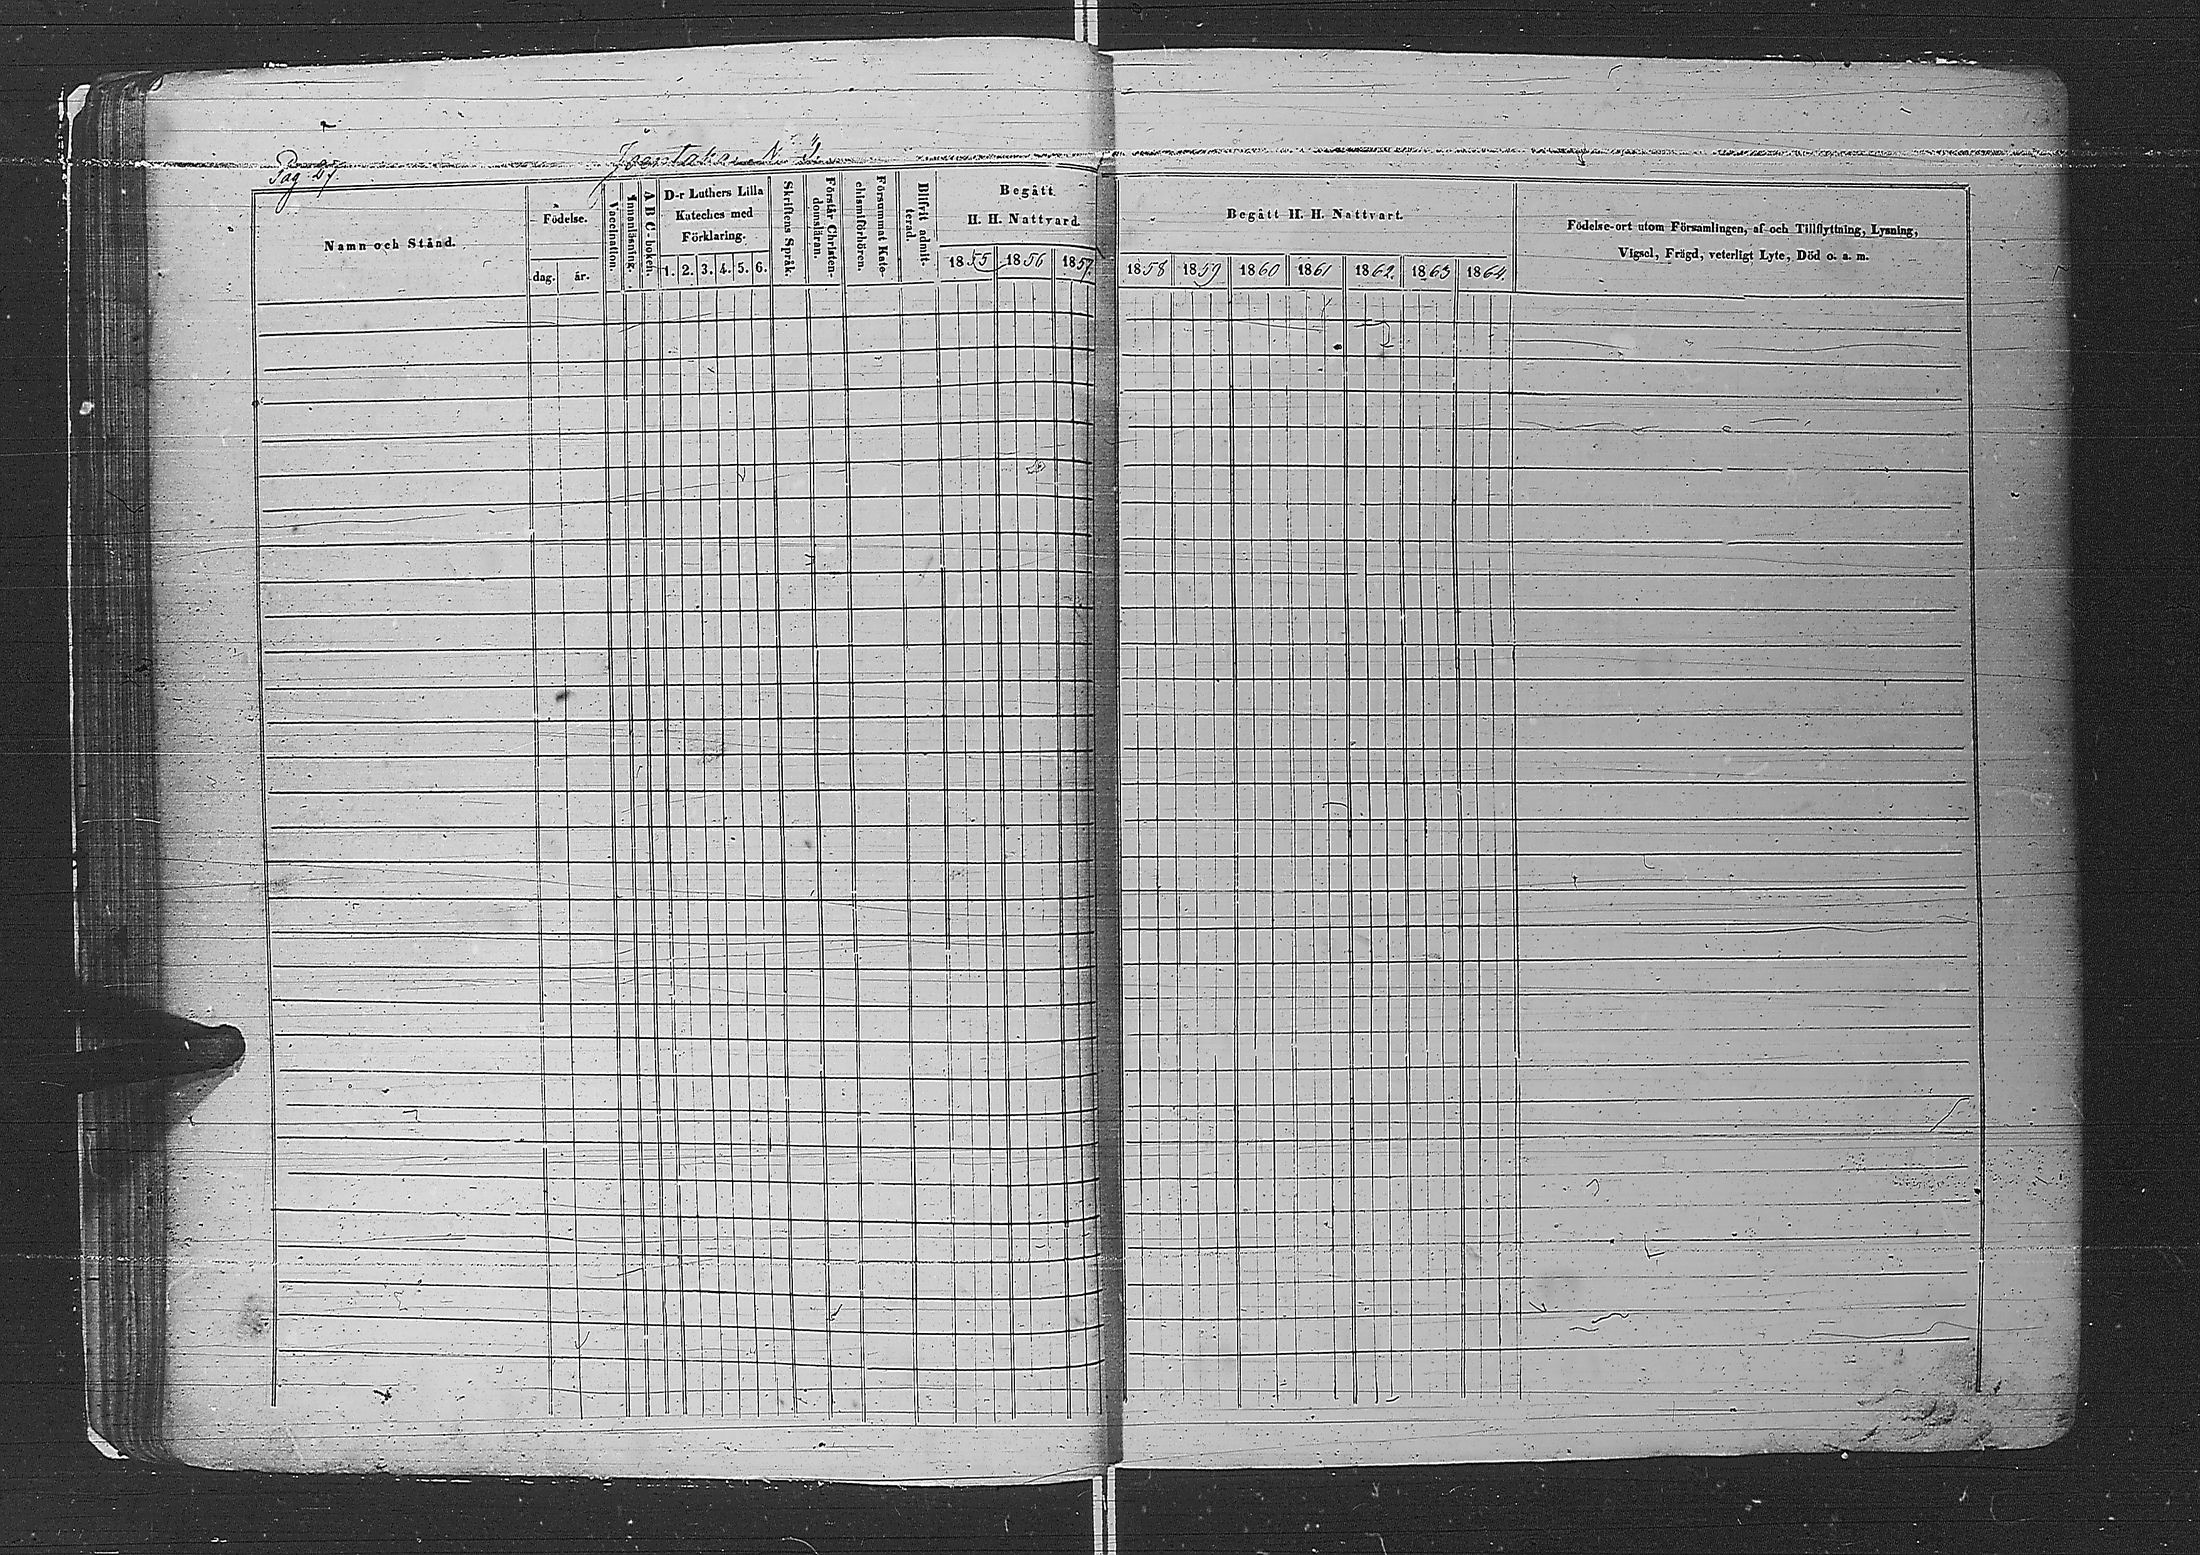 Pag. 27.
Namn och Stånd.
Födelse.
dag. år.
Vaccination.
Innanläsning.
A B C-boken.
D-r Luthers Lilla
Kateches med
Förklaring.
1. 2. 3. 4. 5. 6.
Skriftens Språk.
Förstår Christen-
domsläran.
Försummat Kate-
chismiförhören.
Blifvit admit-
terad.
Begått
H. H. Nattvard.
1855 1856 1857.
Begått H. H. Nattvart.
1858 1859 1860 1861 1862. 1863 1864.
Födelse-ort utom Församlingen, af och Tillflyttning, Lysning,
Vigsel, Frägd, veterligt Lyte, Död o. a. m.